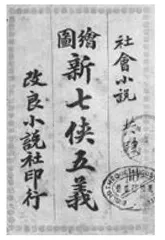 社會小說 共賞
繪圖
新七俠五義
改良小說社印行